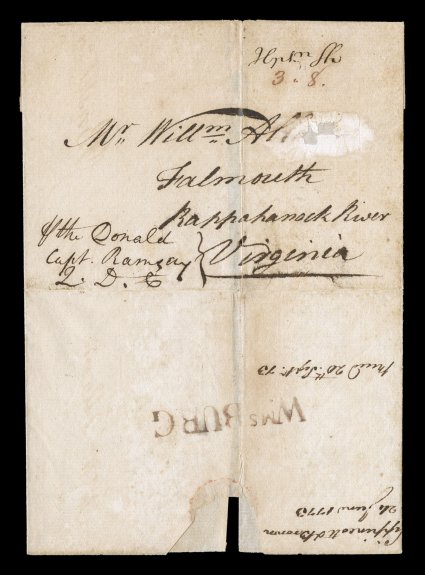 3 . 8.
Mr. Willm. All
Falmouth
Rappahanock River
Virginia
the Donald
Capt. Ramsay
Q. D. C
recd 20th Sept. 73
WMS BURG
Lippincott & Brown
24 June 1773